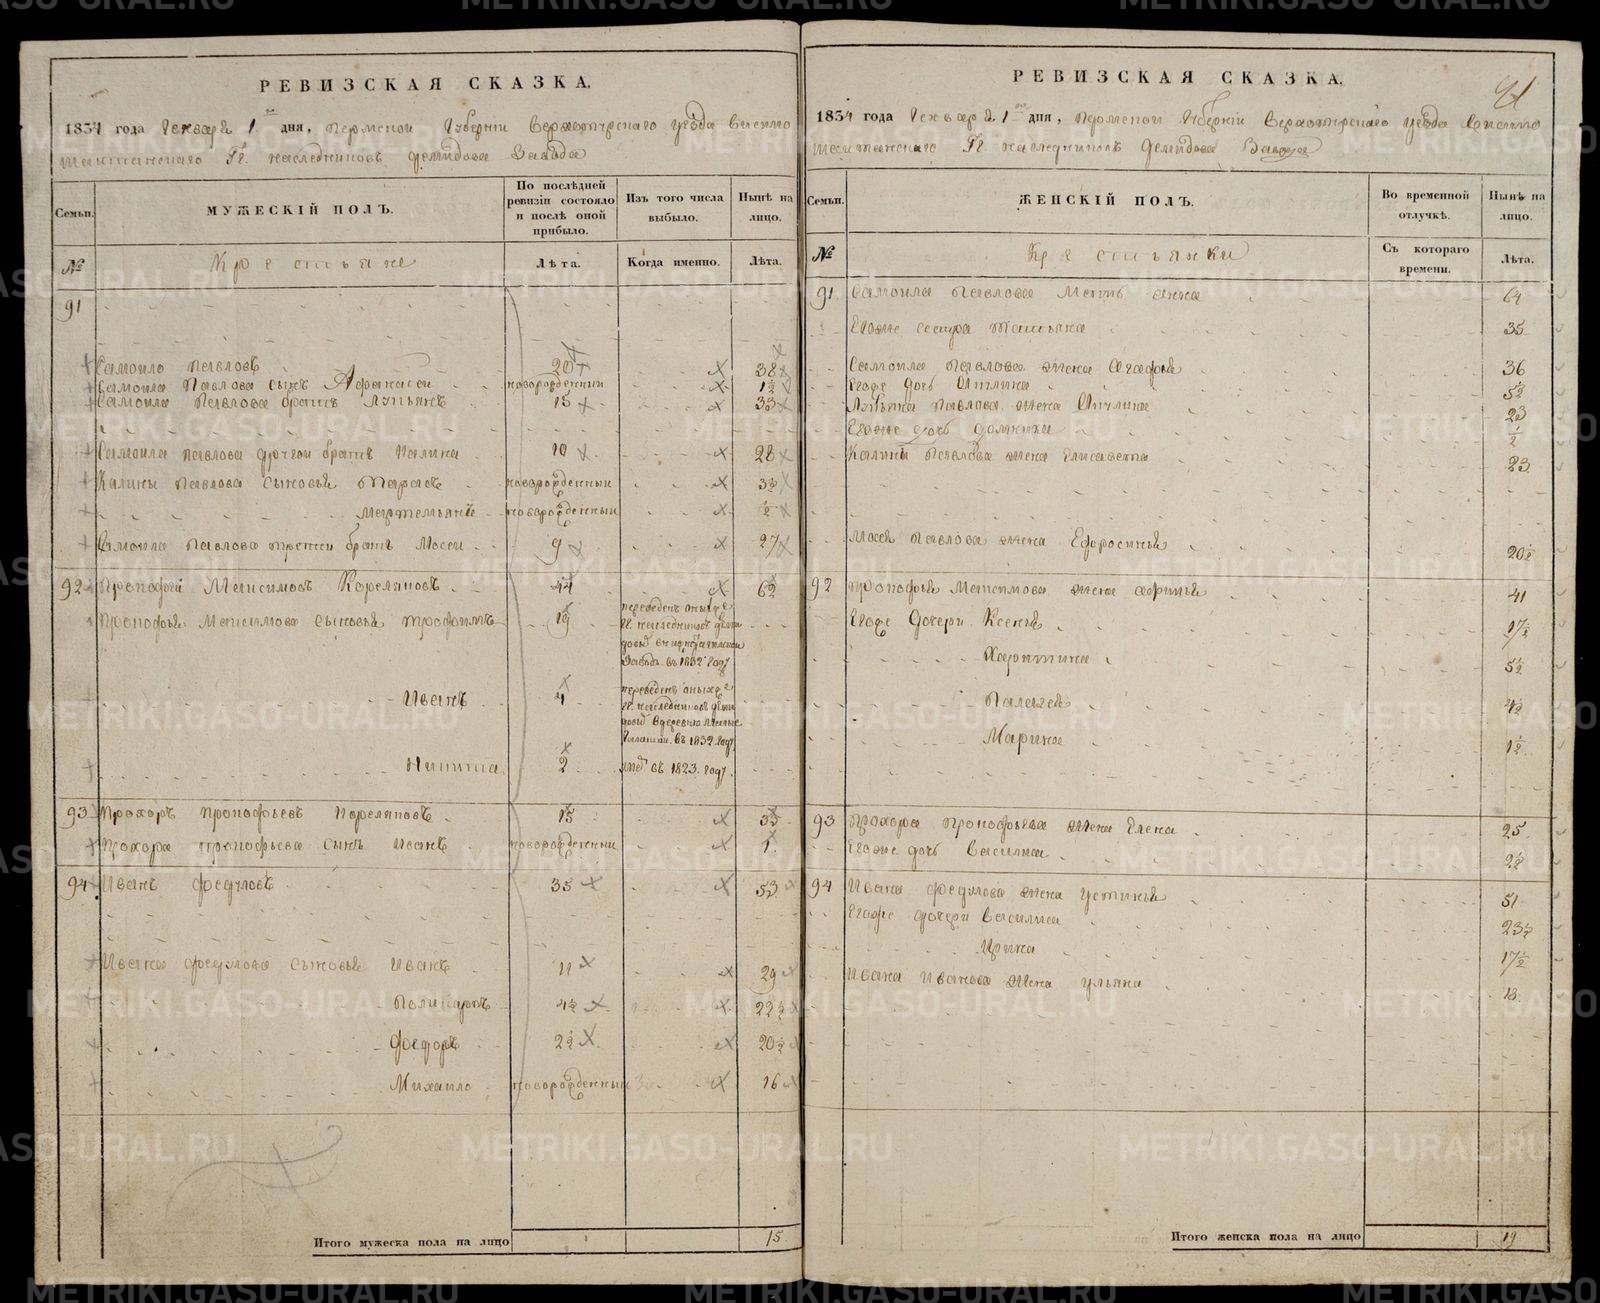 РЕВИЗСКАЯ СКАЗКА.
1834 года Генваря 1 дня, Пермской Губернии Верхотурскаго уезда Висимо
шайтанскаго Гг. наследниковъ Демидова Завода
Семьи.
МУЖЕСКІЙ ПОЛЪ.
По послѣдней ревизіи состояло и послѣ оной прибыло.
Изъ того числа выбыло.
Нынѣ на лицо.
№
Крестьяне
Лѣта.
Когда именно.
Лѣта.
91
Самоило Павловъ 20 38
Самоила Павлова сынъ Афанасей новорожденный 1½
Самоила Павлова братъ Лупьянъ 15 33
Самоила Павлова другой братъ Калина 10 28
Калины Павлова сыновья Тарасъ новорожденный 3½
Мартемьянъ новорожденный ½
Самоила Павлова третей братъ Мосей 9 27
92 Прокофей Максимовъ Кореляковъ 44 62
Прокофья Максимова сыновья Трофимъ 19 переведенъ
Гг. наследниковъ Деми
довыхъ
Заводъ въ 1832 году
Иванъ 4 переведенъ
Гг. наследниковъ Деми
довыхъ в деревню
въ 1832 году
Никита 2 въ 1823 году
93 Прохоръ Прокофьевъ Кореляковъ 15 33
Прохора Прокофьева сынъ Иванъ новорожденный 1
94 Иванъ Федуловъ 35 53
Ивана Федулова сыновья Иванъ 11 29
Поликарпъ 4½ 22½
Федоръ 2½ 20½
Михаило новорожденный 16
Итого мужеска пола на лицо 15
РЕВИЗСКАЯ СКАЗКА.
1834 года Генваря 1 дня, Пермской Губернии Верхотурскаго уезда Висимо
шайтанскаго Гг. наследниковъ Демидова Завода
Семьи.
ЖЕНСКІЙ ПОЛЪ.
Во временной отлучкѣ.
Нынѣ на лицо.
№
Крестьянки
Съ котораго времени.
Лѣта.
91 Самоила Павлова мать Анна 64
Егоже сестра Татьяна 35
Самоила Павлова жена Агафья 36
Егоже дочь Акилина 5½
Лупьяна Павлова жена Акилина 23
Егоже дочь ½
Калины Павлова жена Елисавета 23
Мосея Павлова жена Ефросинья 20½
92 Прокофья Максимова жена 41
Егоже дочери Ксенья 17½
Харитина 5½
Палагея 4½
Марина 1½
93 Прохора Прокофьева жена Елена 25
Егоже дочь Василиса 2½
94 Ивана Федулова жена Устинья 51
Егоже дочери Василиса 23½
Ирина 17½
Ивана Иванова жена Ульяна 18
Итого женска пола на лицо 19
METRIKI.GASO-URAL.RU